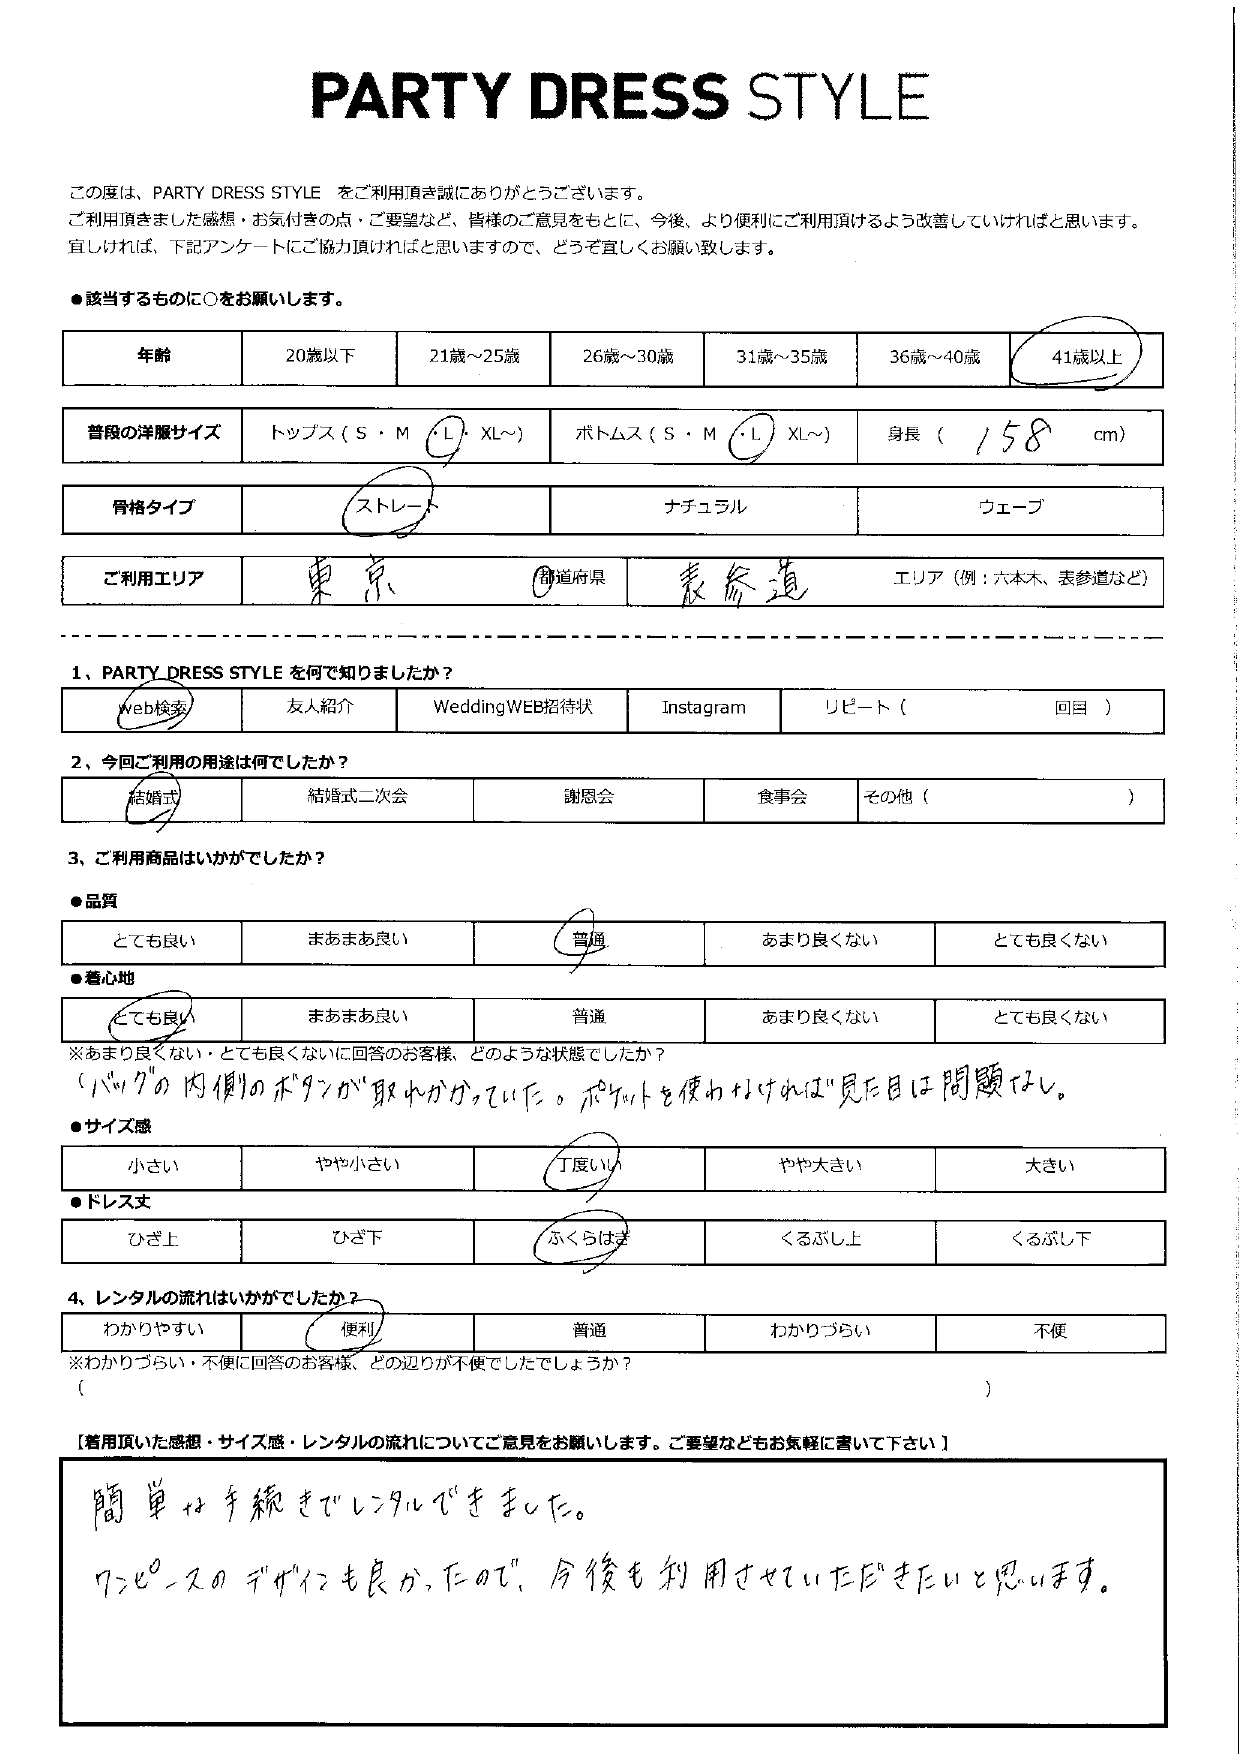 PARTY DRESS STYLE
この度は、PARTY DRESS STYLE をご利用頂き誠にありがとうございます。
ご利用頂きました感想・お気付きの点・ご要望など、皆様のご意見をもとに、今後、より便利にご利用頂けるよう改善していければと思います。
宜しければ、下記アンケートにご協力頂ければと思いますので、どうぞ宜しくお願い致します。
●該当するものに○をお願いします。
年齢 20歳以下 21歳～25歳 26歳～30歳 31歳～35歳 36歳～40歳 41歳以上
普段の洋服サイズ トップス ( S ・ M ・L・ XL～) ボトムス ( S ・ M ・L XL～) 身長 ( 158 cm)
骨格タイプ ストレート ナチュラル ウェーブ
ご利用エリア 東京 都道府県 表参道 エリア（例：六本木、表参道など）
1、PARTY DRESS STYLE を何で知りましたか？
web検索 友人紹介 WeddingWEB招待状 Instagram リピート ( 回目 )
2、今回ご利用の用途は何でしたか？
結婚式 結婚式二次会 謝恩会 食事会 その他 ( )
3、ご利用商品はいかがでしたか？
●品質
とても良い まあまあ良い 普通 あまり良くない とても良くない
●着心地
とても良い まあまあ良い 普通 あまり良くない とても良くない
※あまり良くない・とても良くないに回答のお客様、どのような状態でしたか？
(バッグの内側のボタンが取れかかっていた。ポケットを使わなければ見た目は問題なし。
●サイズ感
小さい やや小さい 丁度いい やや大きい 大きい
●ドレス丈
ひざ上 ひざ下 ふくらはぎ くるぶし上 くるぶし下
4、レンタルの流れはいかがでしたか？
わかりやすい 便利 普通 わかりづらい 不便
※わかりづらい・不便に回答のお客様、どの辺りが不便でしたでしょうか？
( )
【着用頂いた感想・サイズ感・レンタルの流れについてご意見をお願いします。ご要望などもお気軽に書いて下さい】
簡単な手続きでレンタルできました。
ワンピースのデザインも良かったので、今後も利用させていただきたいと思います。